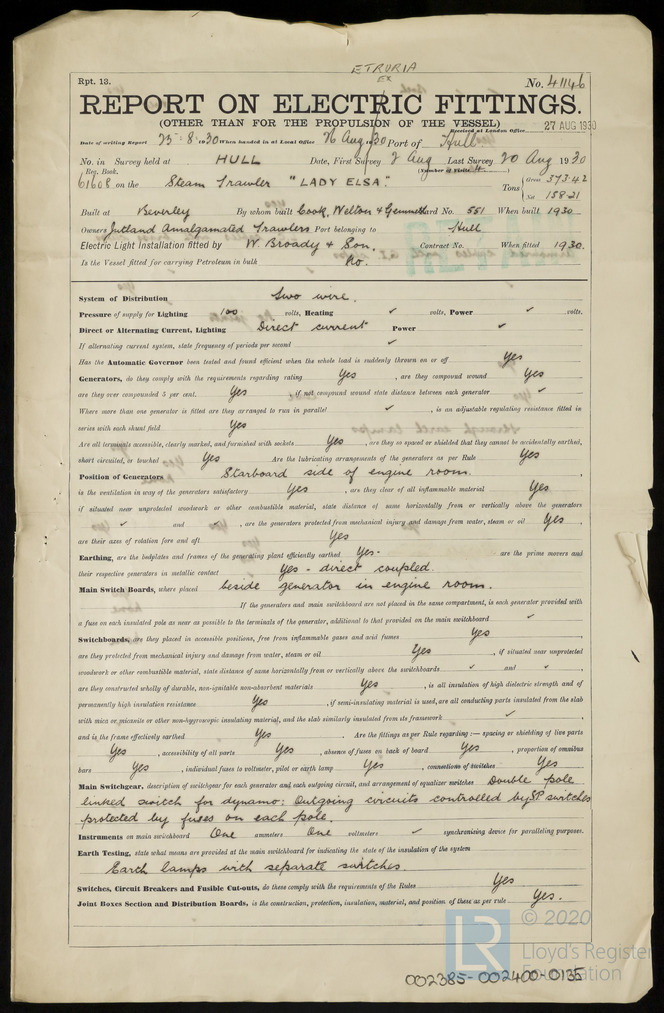 ETRURIA
EX
Rpt. 13.
No. 41146
REPORT ON ELECTRIC FITTINGS.
(OTHER THAN FOR THE PROPULSION OF THE VESSEL)
Received at London Office 27 AUG 1930
Date of writing Report 25-8-1930 When handed in at Local Office 26 Aug 1930 Port of Hull
No. in Survey held at HULL Date, First Survey 2 Aug Last Survey 20 Aug 1930
Reg. Book. (Number of Visits 4)
61608 on the Steam Trawler "LADY ELSA" Tons { Gross 373.42 Net 158.21
Built at Beverley By whom built Cook, Welton & Gemmell Yard No. 551 When built 1930
Owners Jutland Amalgamated Trawlers Port belonging to Hull
Electric Light Installation fitted by W. Broady & Son. Contract No. When fitted 1930.
Is the Vessel fitted for carrying Petroleum in bulk No.
System of Distribution Two wire.
Pressure of supply for Lighting 100 volts, Heating ✓ volts, Power ✓ volts.
Direct or Alternating Current, Lighting Direct current Power ✓
If alternating current system, state frequency of periods per second ✓
Has the Automatic Governor been tested and found efficient when the whole load is suddenly thrown on or off Yes
Generators, do they comply with the requirements regarding rating Yes, are they compound wound Yes
are they over compounded 5 per cent. Yes, if not compound wound state distance between each generator ✓
Where more than one generator is fitted are they arranged to run in parallel ✓, is an adjustable regulating resistance fitted in
series with each shunt field Yes
Are all terminals accessible, clearly marked, and furnished with sockets Yes, are they so spaced or shielded that they cannot be accidentally earthed,
short circuited, or touched Yes Are the lubricating arrangements of the generators as per Rule Yes
Position of Generators Starboard side of engine room.
is the ventilation in way of the generators satisfactory Yes, are they clear of all inflammable material Yes
if situated near unprotected woodwork or other combustible material, state distance of same horizontally from or vertically above the generators
✓ and ✓, are the generators protected from mechanical injury and damage from water, steam or oil Yes,
are their axes of rotation fore and aft Yes
Earthing, are the bedplates and frames of the generating plant efficiently earthed Yes- are the prime movers and
their respective generators in metallic contact Yes - direct coupled.
Main Switch Boards, where placed beside generator in engine room.
If the generators and main switchboard are not placed in the same compartment, is each generator provided with
a fuse on each insulated pole as near as possible to the terminals of the generator, additional to that provided on the main switchboard ✓
Switchboards, are they placed in accessible positions, free from inflammable gases and acid fumes Yes,
are they protected from mechanical injury and damage from water, steam or oil Yes, if situated near unprotected
woodwork or other combustible material, state distance of same horizontally from or vertically above the switchboards ✓ and ✓,
are they constructed wholly of durable, non-ignitable non-absorbent materials Yes, is all insulation of high dielectric strength and of
permanently high insulation resistance Yes, if semi-insulating material is used, are all conducting parts insulated from the slab
with mica or micanite or other non-hygroscopic insulating material, and the slab similarly insulated from its framework ✓,
and is the frame effectively earthed Yes. Are the fittings as per Rule regarding :— spacing or shielding of live parts
Yes, accessibility of all parts Yes, absence of fuses on back of board Yes, proportion of omnibus
bars Yes, individual fuses to voltmeter, pilot or earth lamp Yes, connections of switches Yes
Main Switchgear, description of switchgear for each generator and each outgoing circuit, and arrangement of equalizer switches Double pole
linked switch for dynamo: Outgoing circuits controlled by SP switches
protected by fuses on each pole.
Instruments on main switchboard One ammeters One voltmeters ✓ synchronizing device for paralleling purposes.
Earth Testing, state what means are provided at the main switchboard for indicating the state of the insulation of the system
Earth lamps with separate switches.
Switches, Circuit Breakers and Fusible Cut-outs, do these comply with the requirements of the Rules Yes
Joint Boxes Section and Distribution Boards, is the construction, protection, insulation, material, and position of these as per rule Yes.
LR © 2020
Lloyd's Register
Foundation
002385-002400-0135